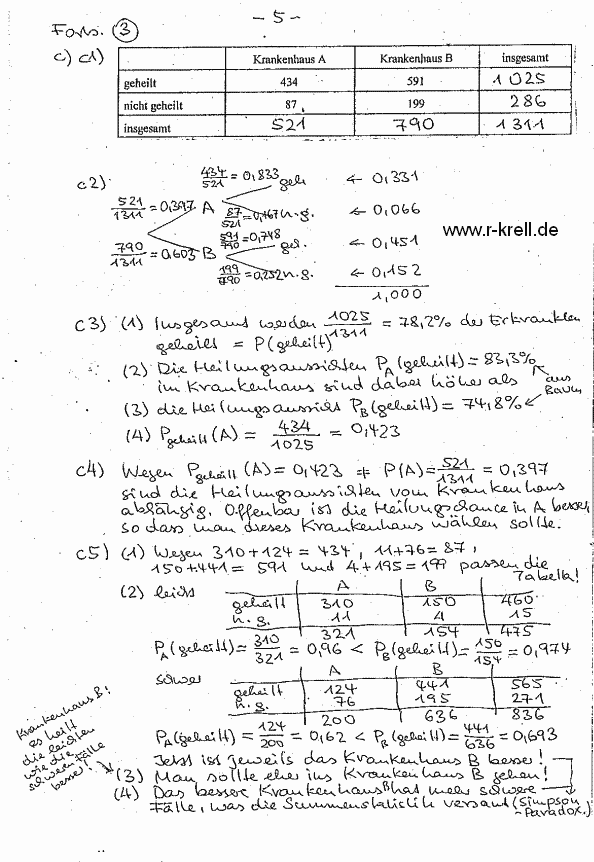 - 5 -
Forts. ③
c) c1)
Krankenhaus A Krankenhaus B insgesamt
geheilt 434 591 1025
nicht geheilt 87 199 286
insgesamt 521 790 1311
c2)
434/521 = 0,833 geh ← 0,331
521/1311 = 0,397 A 87/521 = 0,167 n.g. ← 0,066
www.r-krell.de
790/1311 = 0,603 B 591/790 = 0,748 gel. ← 0,451
199/790 = 0,252 n.g. ← 0,152
1,000
c3) (1) Insgesamt werden 1025/1311 = 78,2% der Erkrankten
geheilt = P(geheilt)
(2) Die Heilungsaussichten P_A(geheilt) = 83,3%
im Krankenhaus sind dabei höher als
aus Baum
(3) die Heilungsaussicht P_B(geheilt) = 74,8%
(4) P_geheilt(A) = 434/1025 = 0,423
c4) Wegen P_geheilt(A) = 0,423 ≠ P(A) = 521/1311 = 0,397
sind die Heilungsaussichten vom Krankenhaus
abhängig. Offenbar ist die Heilungschance in A besser,
so dass man dieses Krankenhaus wählen sollte.
c5) (1) Wegen 310+124 = 434, 11+76 = 87,
150+441 = 591 und 4+195 = 199 passen die
Tabellen!
(2) leicht
A B
geheilt 310 150 460
n.g. 11 4 15
321 154 475
P_A(geheilt) = 310/321 = 0,96 < P_B(geheilt) = 150/154 = 0,974
schwer
A B
geheilt 124 441 565
n.g. 76 195 271
200 636 836
P_A(geheilt) = 124/200 = 0,62 < P_B(geheilt) = 441/636 = 0,693
Jetzt ist jeweils das Krankenhaus B besser!
Krankenhaus B!
es heilt
die leichten
wie die
schweren Fälle
besser!
(3) Man sollte eher ins Krankenhaus B gehen!
(4) Das bessere Krankenhaus B hat mehr schwere
Fälle, was die Summenstatistik versaut (Simpson
-Paradox.)